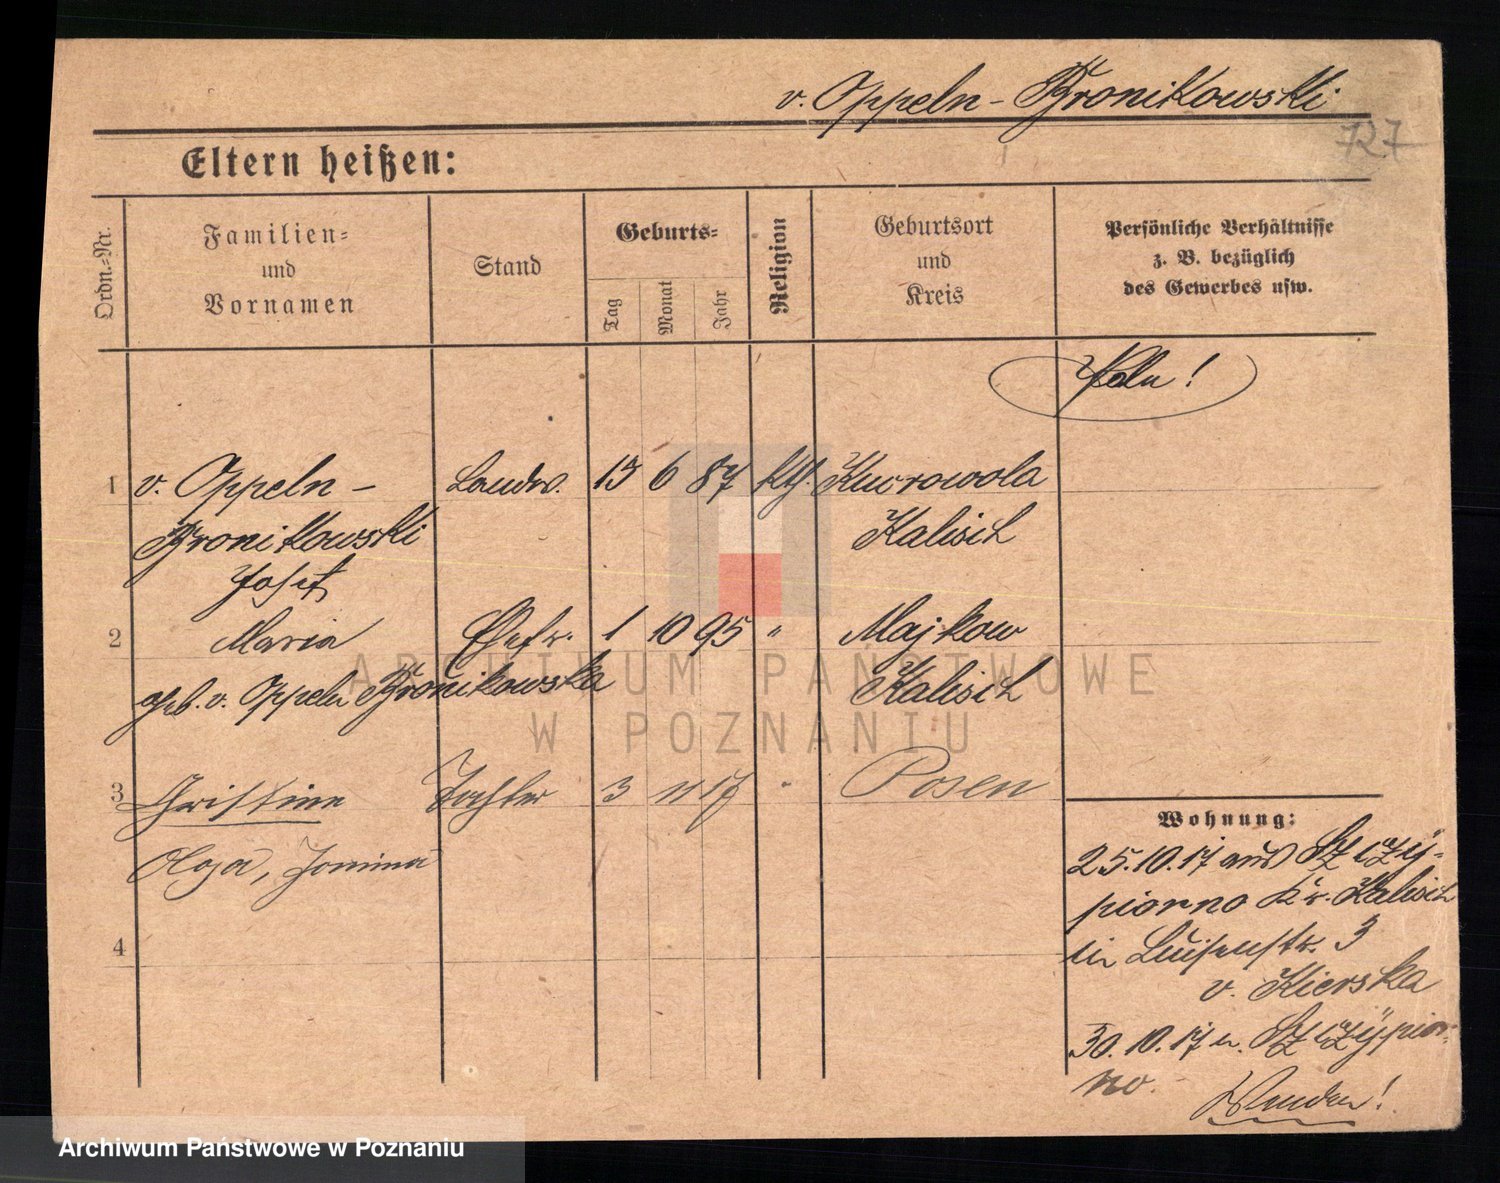 v. Oppeln - Bronikowski
727
Eltern heißen:
Ordn.=Nr.
Familien=
und
Vornamen
Stand
Geburts=
Tag
Monat
Jahr
Religion
Geburtsort
und
Kreis
Persönliche Verhältnisse
z. B. bezüglich
des Gewerbes usw.
1 v. Oppeln - Landw. 13 6 87 kth. Kucrowola
Bronikowski Kalisch
Josef
2 Maria Ehefr. 1 10 95 " Majkow
geb. v. Oppeln Bronikowska Kalisch
3 Christine Tochter 3 11 17 " Posen
Olga, Jomina
4
Wohnung:
25.10.17 aus Szczy-
piorno Kr. Kalisch
in Luisenstr. 3
v. Kierska
30.10.17 n. Szczypior-
no.
Wenden!
ARCHIWUM PAŃSTWOWE
W POZNANIU
Archiwum Państwowe w Poznaniu